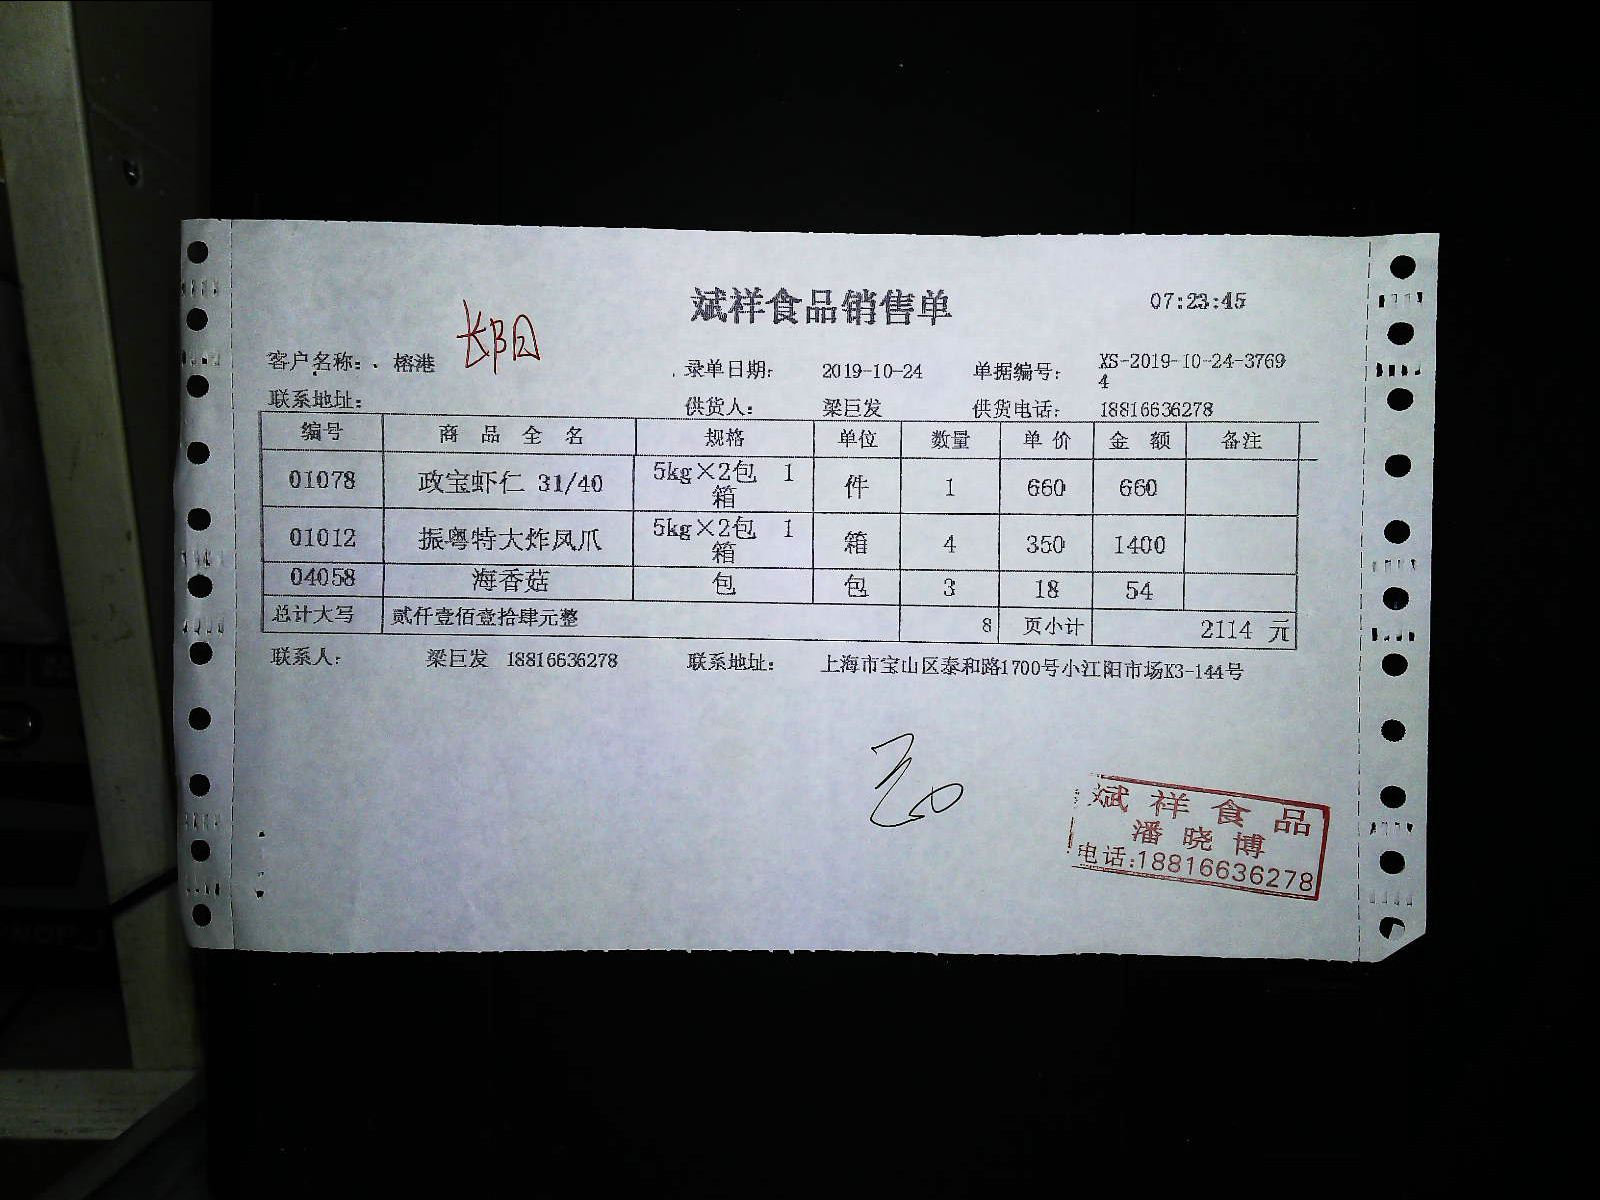 斌祥食品销售单 07:23:45
长阳
客户名称: 榕港 录单日期: 2019-10-24 单据编号: XS-2019-10-24-3769
4
联系地址: 供货人: 梁巨发 供货电话: 18816636278
编号 商品全名 规格 单位 数量 单价 金额 备注
01078 政宝虾仁 31/40 5kg×2包 1箱 件 1 660 660
01012 振粤特大炸凤爪 5kg×2包 1箱 箱 4 350 1400
04058 海香菇 包 包 3 18 54
总计大写 贰仟壹佰壹拾肆元整 8 页小计 2114 元
联系人: 梁巨发 18816636278 联系地址: 上海市宝山区泰和路1700号小江阳市场K3-144号
斌祥食品
潘晓博
电话:18816636278